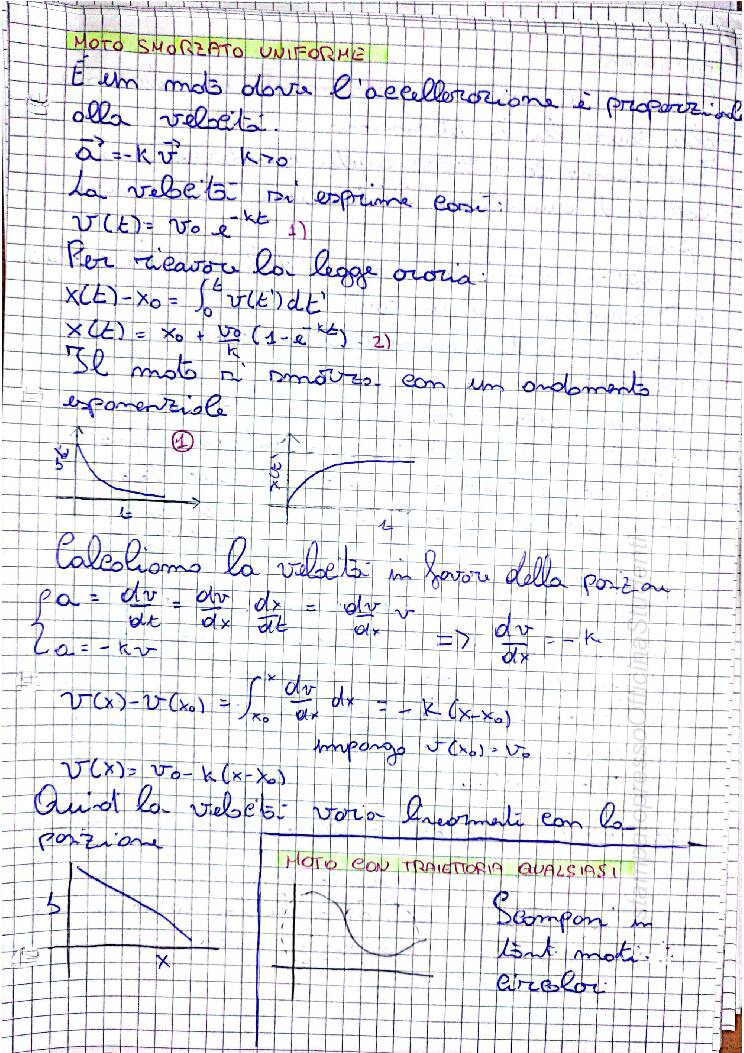 MOTO SMORZATO UNIFORME
È un moto dove l'accellerazione è proporzional
alla velocità.
a⃗ = -k v⃗ k>0
La velocità si esprime così:
v(t) = v₀ e^{-kt} 1)
Per ricavare la legge oraria:
x(t) - x₀ = ∫₀ᵗ v(t') dt'
x(t) = x₀ + v₀/k (1 - e^{-kt}) 2)
Il moto si smorza con un andamento
esponenziale
1
t
x(t)
t
Calcoliamo la velocità in favore della posizion
{ a = dv/dt = dv/dx dx/dt = dv/dx v
a = -kv => dv/dx = -k
v(x) - v(x₀) = ∫_{x₀}^{x} dv/dx dx = -k (x-x₀)
impongo v(x₀) = v₀
v(x) = v₀ - k(x-x₀)
Quindi la velocità varia linearmente con la
posizione
x
MOTO CON TRAIETTORIA QUALSIASI
Scomponi in
tanti moti
circolari